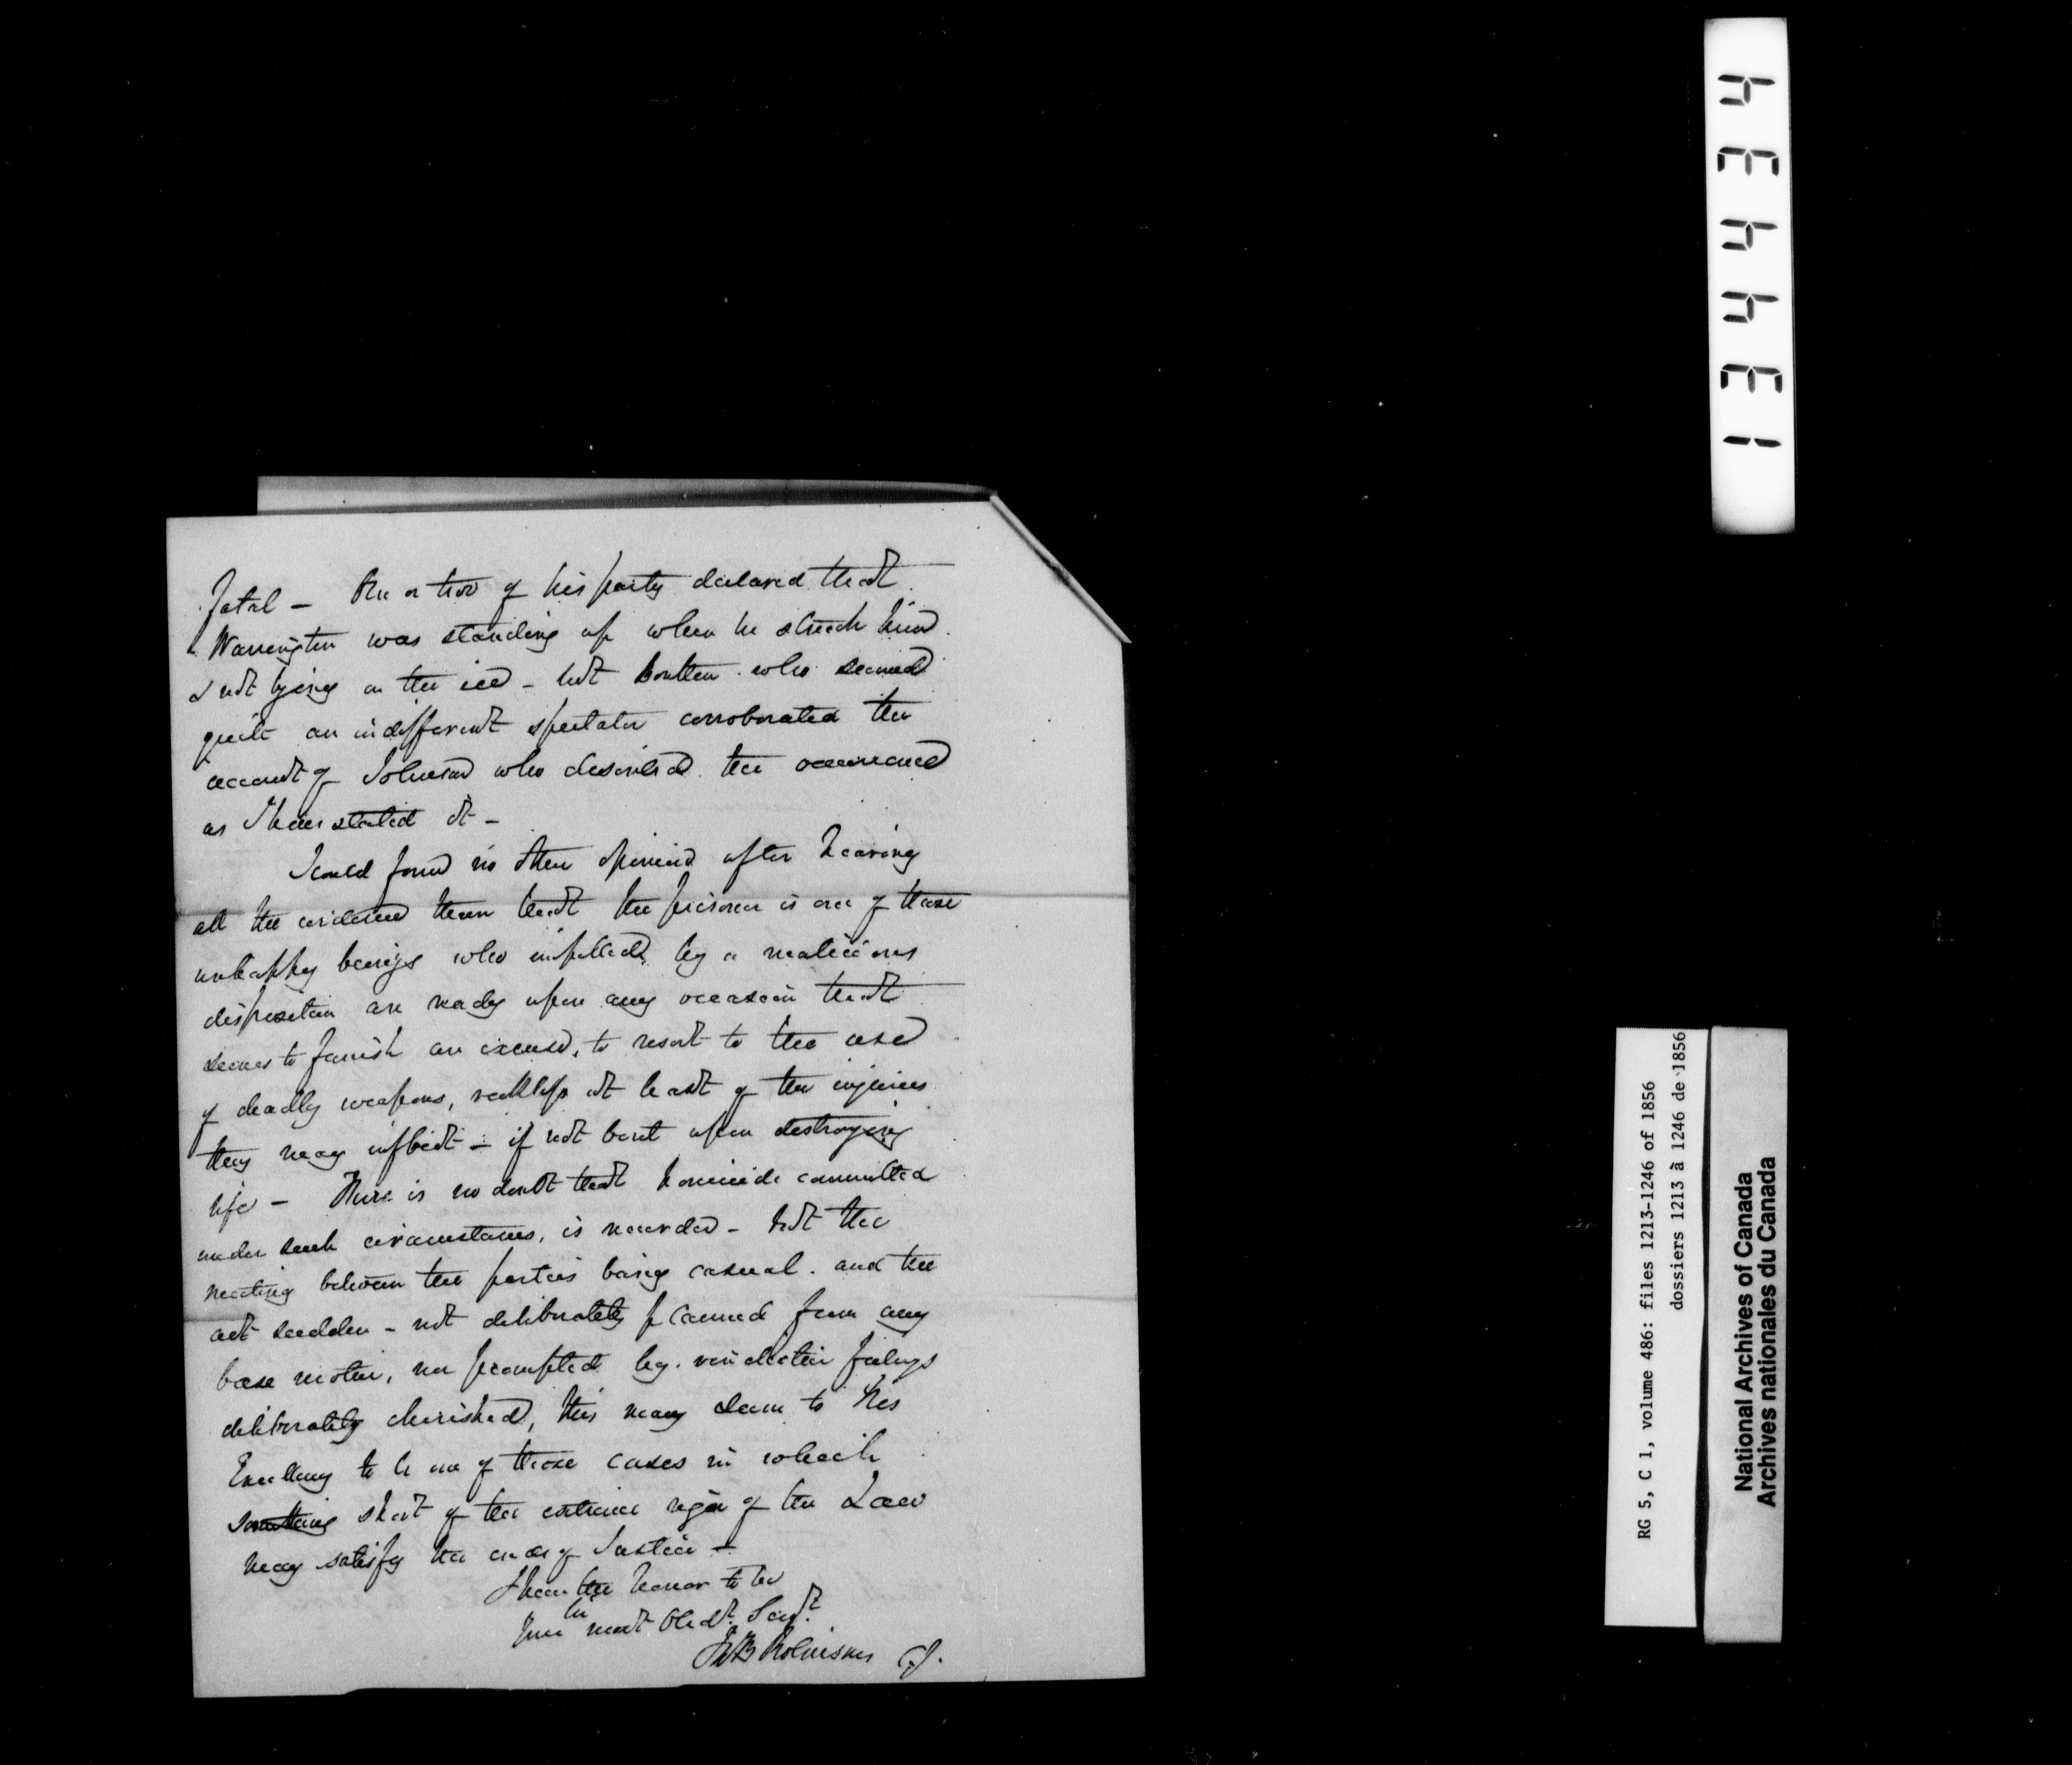 fatal — One or two of his party declared that
Warrington was standing up when he struck him
& not lying on the ice – but Boulton who seemed
quite an indifferent spectator corroborated the
account of Johnson who described the occurrence
as I have stated it –
I could form no other opinion after hearing
all the evidence than that the prisoner is one of those
unhappy beings who impelled by a malicious
disposition are ready upon any occasion that
seems to furnish an excuse, to resort to the use
of deadly weapons, reckless at least of the injuries
they may inflict – if not bent upon destroying
life – There is no doubt that homicide committed
under such circumstances, is murder – but the
meeting between the parties being casual. and the
act sudden – not deliberately planned from any
base motive, nor prompted by vindictive feelings
deliberately cherished, this may seem to His
Excellency to be one of those cases in which
something short of the extreme rigor of the Law
may satisfy the ends of Justice –
I have the honor to be
Your most Obedt. Servt.
J B Robinson C.J.
134434
RG 5, C 1, volume 486: files 1213-1246 of 1856
dossiers 1213 à 1246 de 1856
National Archives of Canada
Archives nationales du Canada